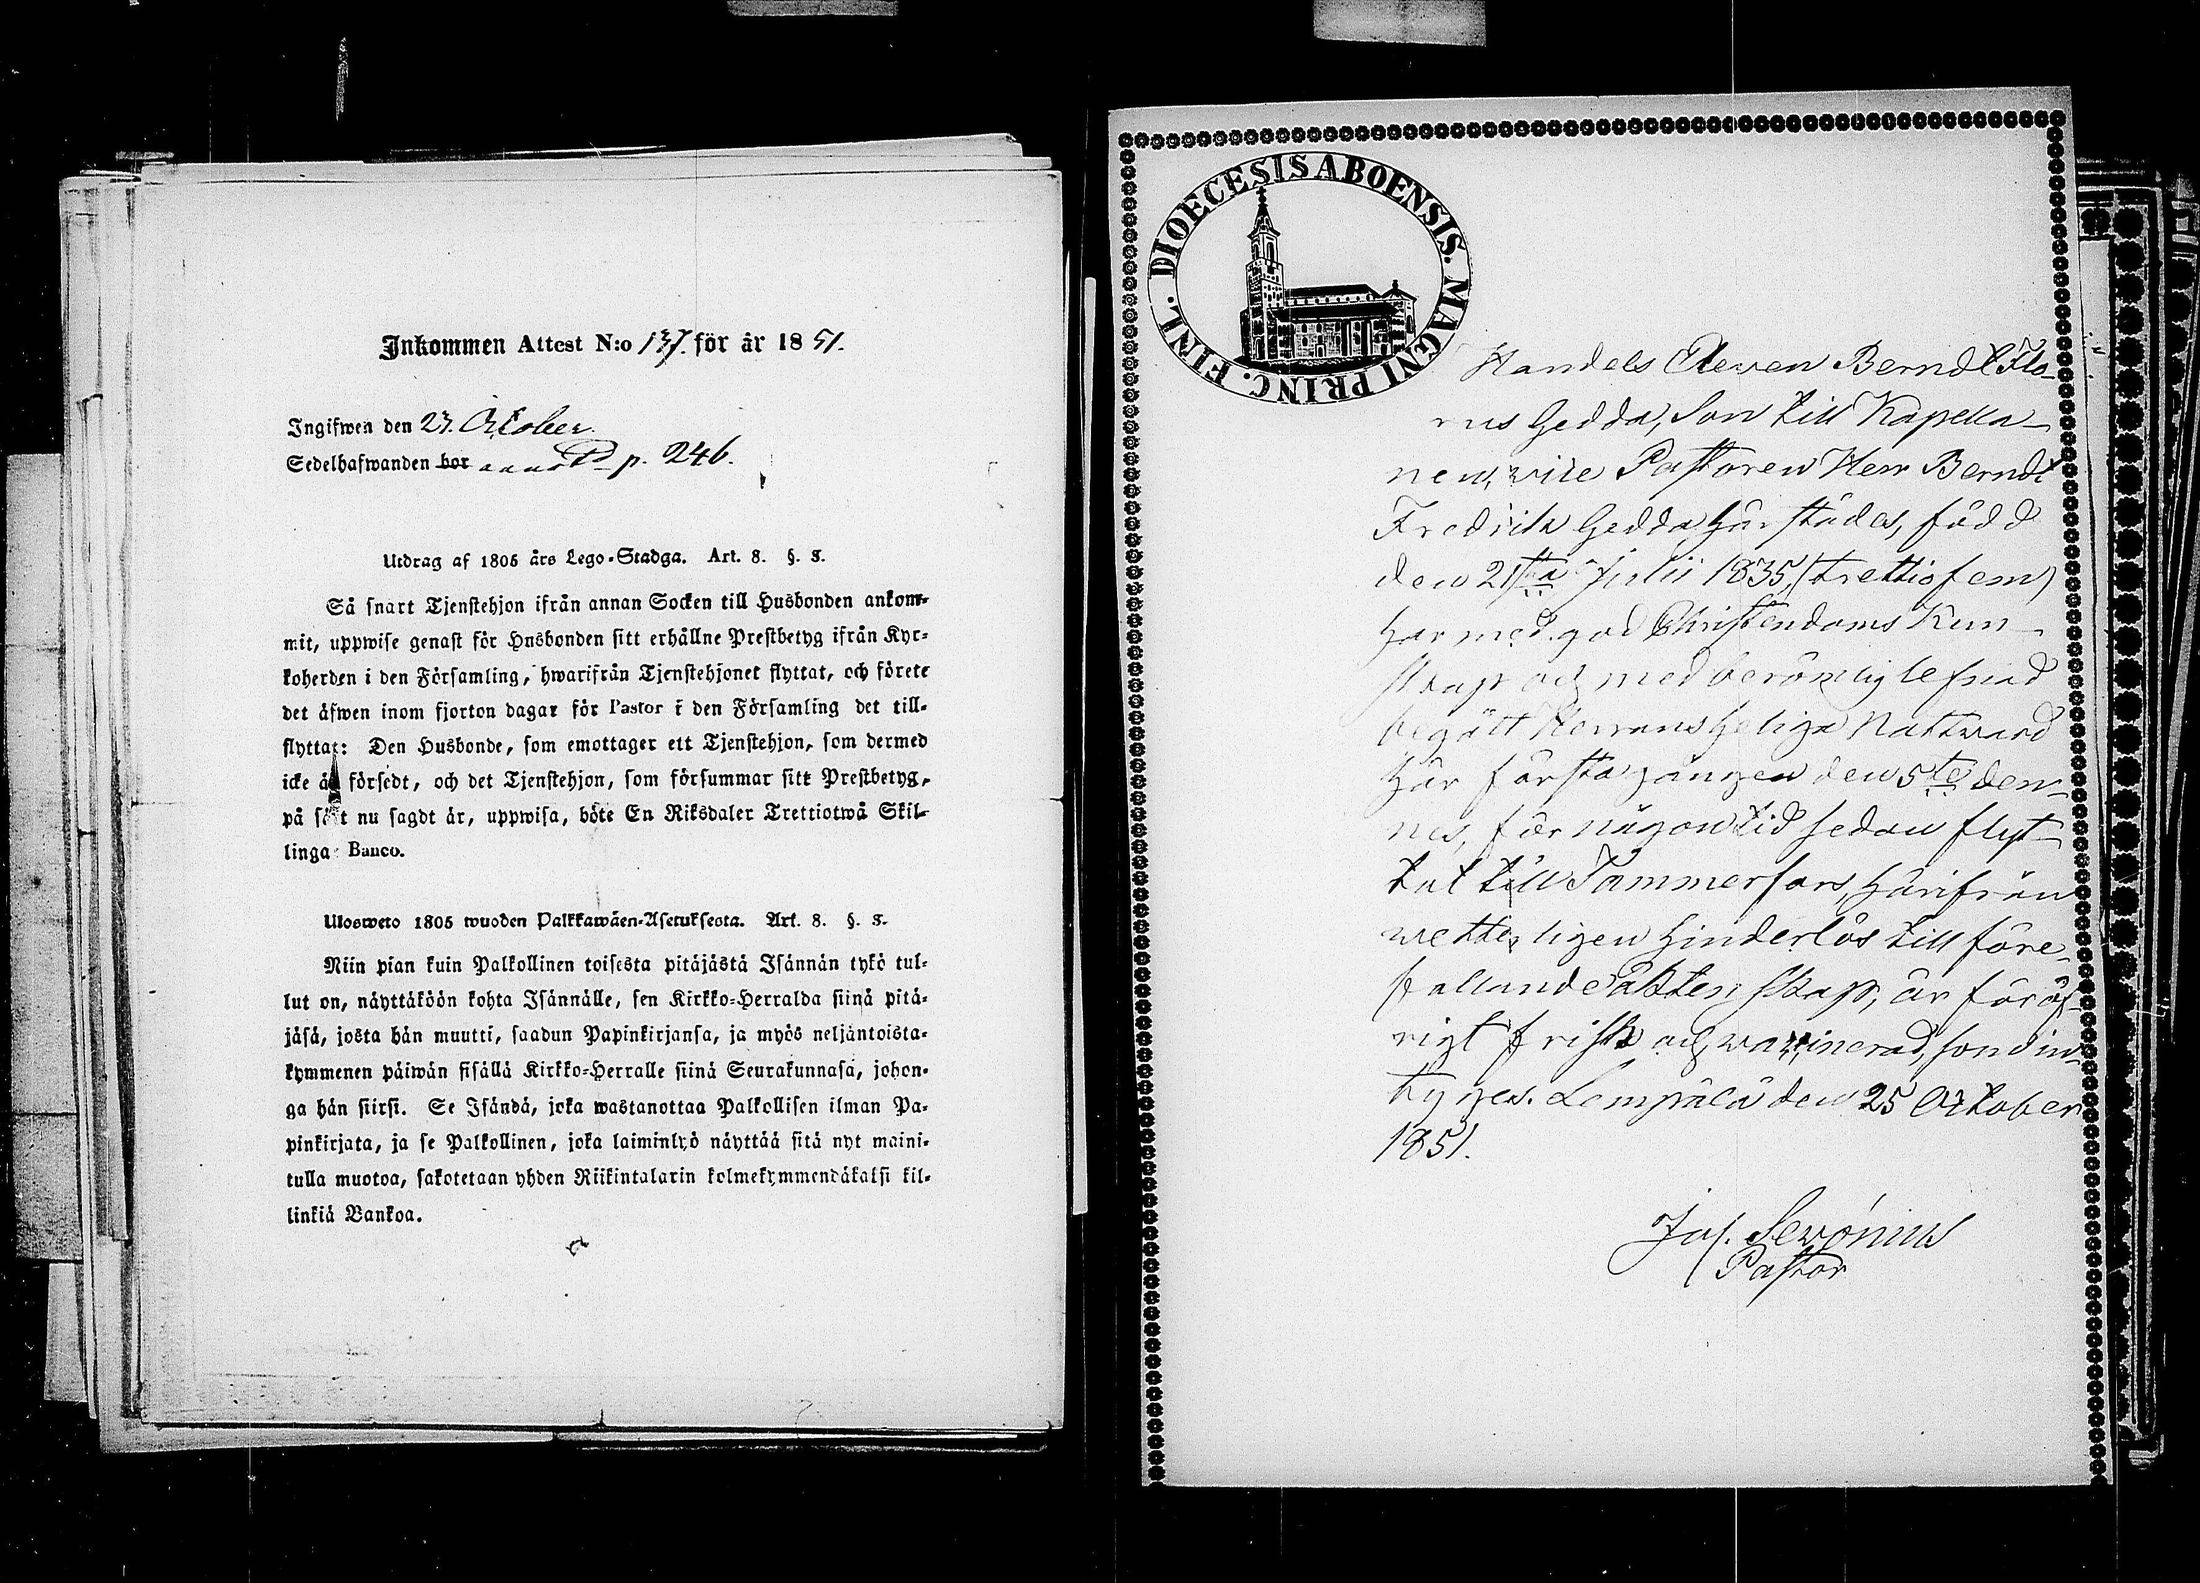 Inkommen Attest N:o 137. för år 1851.
Ingifwen den 27. October.
Sedelhafwanden bor annot. p. 246.
Utdrag af 1805 års Lego-Stadga. Art. 8. §. 8.
Så snart Tjenstehjon ifrån annan Socken till Husbonden ankom-
mit, uppwise genast för Husbonden sitt erhållne Prestbetyg ifrån Kyr-
koherden i den Församling, hwarifrån Tjenstehjonet flyttat, och förete
det äfwen inom fjorton dagar för Pastor i den Församling det till-
flyttat: Den Husbonde, som emottager ett Tjenstehjon, som dermed
icke är försedt, och det Tjenstehjon, som försummar sitt Prestbetyg,
på sätt nu sagdt är, uppwisa, böte En Riksdaler Trettiotwå Skil-
linga Banco.
Ulosweto 1805 wuoden Palkkawäen-Asetuksesta. Art. 8. §. 8.
Niin pian kuin Palkollinen toisesta pitäjästä Isännän tykö tul-
lut on, näyttäköön kohta Isännälle, sen Kirkko-Herralda siinä pitä-
jäsä, josta hän muutti, saadun Papinkirjansa, ja myös neljäntoista-
kymmenen päiwän sisällä Kirkko-Herralle siinä Seurakunnasa, johon-
ga hän siirsi. Se Isändä, joka wastanottaa Palkollisen ilman Pa-
pinkirjata, ja se Palkollinen, joka laiminlyö näyttää sitä nyt maini-
tulla muotoa, sakotetaan yhden Riikintalarin kolmekymmendäkaksi kil-
linkiä Bankoa.
DIOECESIS ABOENSIS. MAGNI PRINC. FINL.
Handels Eleven Berndt Flo-
rus Gedda, Son till Kapella-
nen, vice Pastoren Herr Berndt
Fredrik Gedda härstädes, född
den 21sta Julii 1835, (trettiofem)
har med god Christendoms Kun-
skap och med berömlig lefnad
begått Herrans heliga Nattward
här första gången den 5te den-
nes, för någon tid sedan flyt-
tat till Tammerfors, härifrån
wetterligen hinderlös till före-
fallande äktenskap, är föröf-
rigt frisk och waccinerad, som in-
tyges. Lempälä den 25 October
1851.
Jos. Sewónius
Pastor